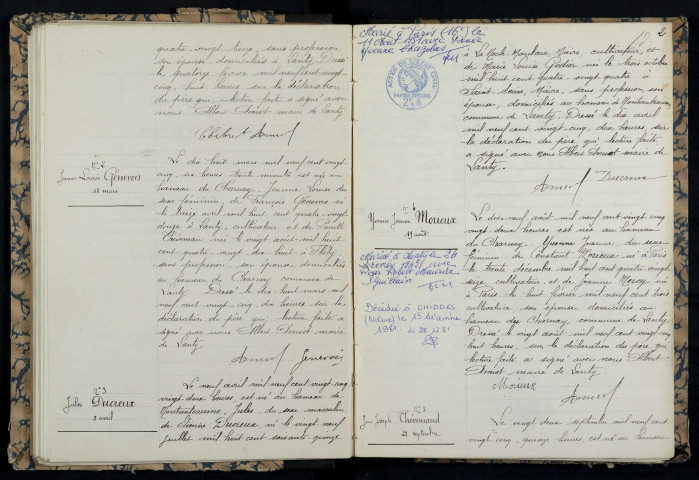 quatre vingt treize, sans profession,
son épouse domiciliés à Lanty. Dressé
le quatorze février mil neuf cent vingt
cinq, huit heures sur la déclaration
du père qui, lecture faite a signé avec
nous Albert Doriot maire de Lanty
N° 2
Jeanne Louise Genevois
18 mars
Le dix huit mars mil neuf cent vingt
cinq, six heures trente minutes est née au
hameau du Charnay, Jeanne Louise du
sexe féminin, de François Genevois né
le treize avril mil huit cent quatre vingt
douze à Lanty, cultivateur et de
née le vingt août mil huit
cent quatre vingt dix huit à
sans profession, son épouse domiciliés
au hameau du Charnay commune de
Lanty. Dressé le dix huit mars mil
neuf cent vingt cinq, dix heures sur la
déclaration du père qui lecture faite a
signé avec nous Albert Doriot, maire
de Lanty.
Genevois
N° 3
Jules Ducreux
9 avril
Le neuf avril mil neuf cent vingt cinq
vingt deux heures est né au hameau de
Montanteaume, Jules du sexe masculin
de Ducreux né le vingt neuf
juillet mil huit cent soixante quinze
2
Marié à Paris (16e) le
11 août avec
Yvonne
ACTES DE L'ÉTAT CIVIL
PAPIER SPÉCIAL
à La Roche-Millay, Nièvre, cultivateur, et
de Marie Louise née le trois octobre
mil huit cent quatre-vingt quatre à
Saint Nièvre, sans profession son
épouse, domiciliés au hameau de Montanteaume,
commune de Lanty. Dressé le dix avril
mil neuf cent vingt-cinq, dix heures sur
la déclaration du père qui lecture faite
a signé avec nous Albert Doriot maire de
Lanty.
Ducreux
N° 4
Yvonne Jeanne Morieux
19 août
Le dix-neuf août mil neuf cent vingt cinq
vingt douze heures est née au hameau
du Charnay Yvonne Jeanne, du sexe
féminin de Constant Morieux né à Paris
le trente décembre mil huit cent quatre-vingt
seize cultivateur et de Jeanne née
à Paris le huit février mil neuf cent trois
cultivatrice son épouse domiciliés au
hameau du Charnay commune de Lanty.
Dressé le vingt août mil neuf cent vingt cinq
huit heures, sur la déclaration du père qui
lecture faite a signé avec nous Albert
Doriot maire de Lanty.
Morieux
Mariée à le 24
avec
Roger
Décédée à CHIDDES
(Nièvre) le 15 décembre
1981. le 28.12.81
N° 5
Jean Joseph
22 septembre
Le vingt deux septembre mil neuf cent
vingt cinq, quinze heures, est né au hameau